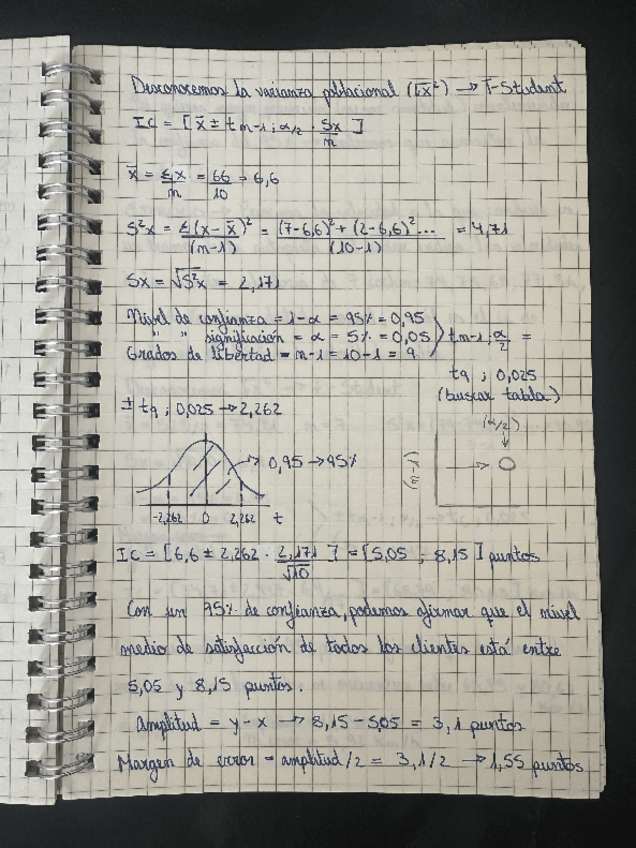 Desconocemos la varianza poblacional (σx²) → T-Student
IC = [ x̄ ± t n-1; α/2 · Sx/n ]
x̄ = Σx/n = 66/10 = 6,6
S²x = Σ(x - x̄)²/(n-1) = (7-6,6)² + (2-6,6)² .../(10-1) = 4,71
Sx = √S²x = 2,171
Nivel de confianza = 1-α = 95% = 0,95
" " significación = α = 5% = 0,05 } t n-1; α/2 =
Grados de libertad = n-1 = 10-1 = 9
t9 ; 0,025
(buscar tabla)
± t9 ; 0,025 → 2,262
(α/2)
(n-1)
→ 0,95 → 95%
-2,262 0 2,262 t
IC = [ 6,6 ± 2,262 · 2,171/√10 ] = [ 5,05 ; 8,15 ] puntos
Con un 95% de confianza, podemos afirmar que el nivel
medio de satisfacción de todos los clientes está entre
5,05 y 8,15 puntos.
Amplitud = y - x → 8,15 - 5,05 = 3,1 puntos
Margen de error = amplitud/2 = 3,1/2 → 1,55 puntos